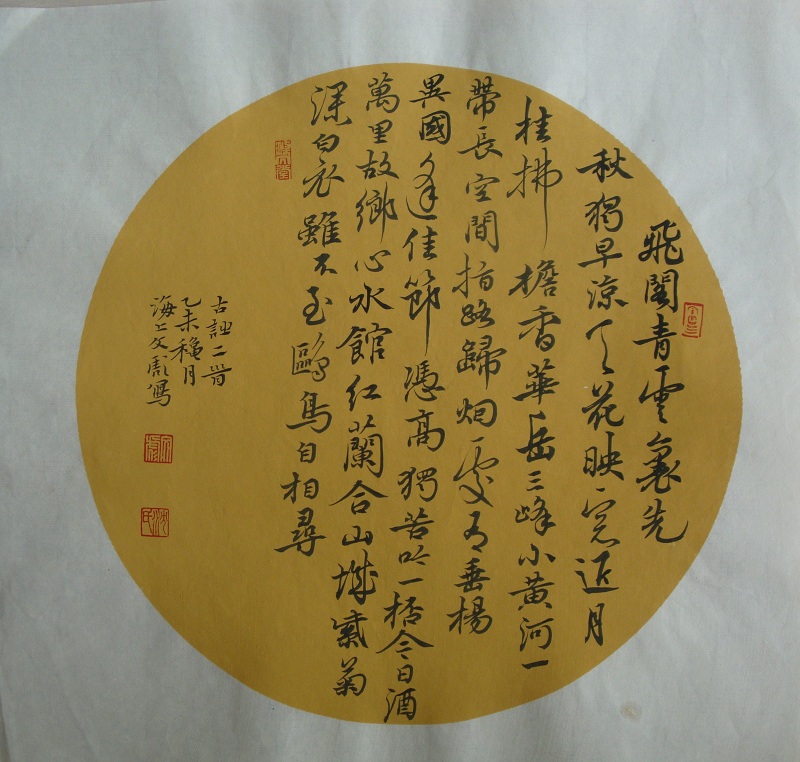 飛閣青雲裏先
秋獨早涼天花映窓近月
桂拂檐香華岳三峰小黄河一
帶長空間指路歸烟處有垂楊
異國逢佳節憑高獨苦吟一桮今日酒
萬里故鄉心水館紅蘭合山城紫菊
深白衣雖不至鷗鳥自相尋
古詩二首
乙未穐月
海上文寫